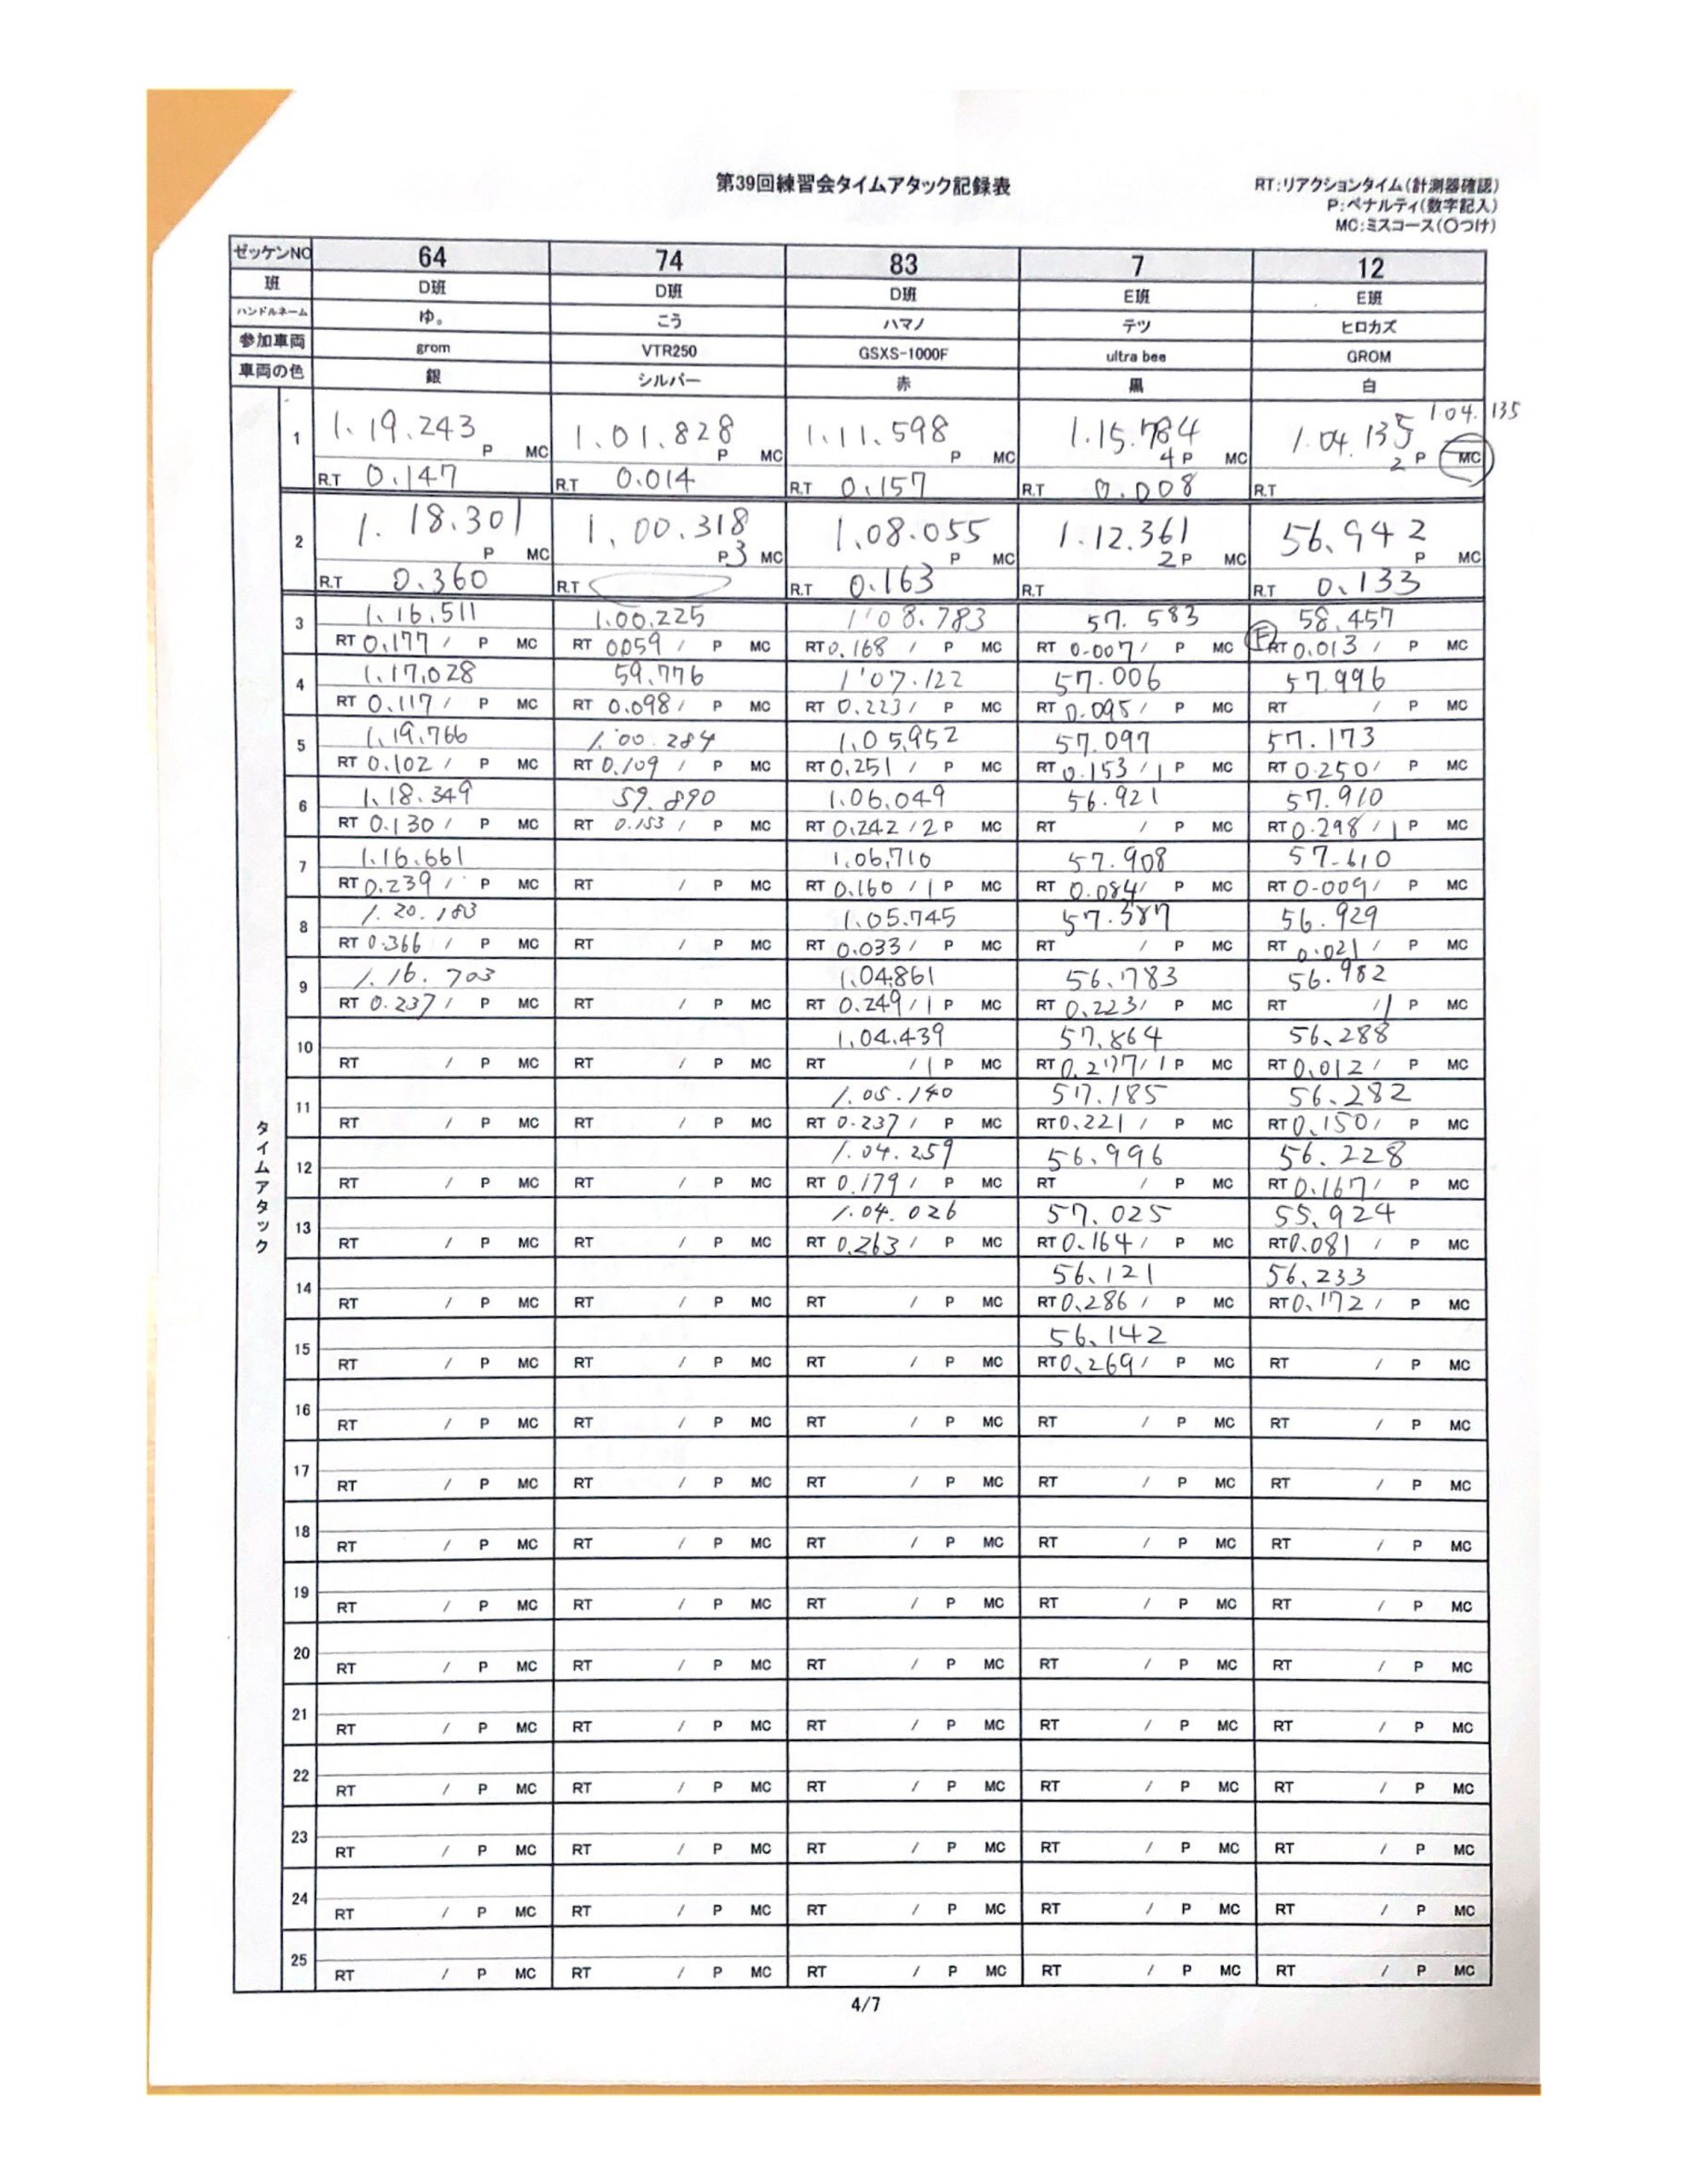 第39回練習会タイムアタック記録表
RT:リアクションタイム(計測器確認)
P:ペナルティ(数字記入)
MC:ミスコース(〇つけ)
ゼッケンNO 64 74 83 7 12
班 D班 D班 D班 E班 E班
ハンドルネーム ゆ。 こう ハマノ テツ ヒロカズ
参加車両 grom VTR250 GSXS-1000F ultra bee GROM
車両の色 銀 シルバー 赤 黒 白
タイムアタック
1.04.135
1 1.19.243 1.01.828 1.11.598 1.15.784 1.04.135
P MC P MC P MC 4 P MC 2 P MC
R.T 0.147 R.T 0.014 R.T 0.157 R.T 0.008 R.T
2 1.18.301 1.00.318 1.08.055 1.12.361 56.942
P MC P3 MC P MC 2 P MC P MC
R.T 0.360 R.T R.T 0.163 R.T R.T 0.133
3 1.16.511 1.00.225 1'08.783 57.583 58.457
RT 0.177 / P MC RT 0059 / P MC RT 0.168 / P MC RT 0.007 / P MC F RT 0.013 / P MC
4 1.17.028 59.776 1'07.122 57.006 57.996
RT 0.117 / P MC RT 0.098 / P MC RT 0.223 / P MC RT 0.095 / P MC RT / P MC
5 1.19.766 1.00.284 1.05.952 57.097 57.173
RT 0.102 / P MC RT 0.109 / P MC RT 0.251 / P MC RT 0.153 / 1 P MC RT 0.250 / P MC
6 1.18.349 59.890 1.06.049 56.921 57.910
RT 0.130 / P MC RT 0.153 / P MC RT 0.242 / 2 P MC RT / P MC RT 0.298 / 1 P MC
7 1.16.661 1.06.710 57.908 57.610
RT 0.239 / P MC RT / P MC RT 0.160 / 1 P MC RT 0.084 / P MC RT 0.009 / P MC
8 1.20.183 1.05.745 57.387 56.929
RT 0.366 / P MC RT / P MC RT 0.033 / P MC RT / P MC RT 0.021 / P MC
9 1.16.703 1.04.861 56.783 56.982
RT 0.237 / P MC RT / P MC RT 0.249 / 1 P MC RT 0.223 / P MC RT / 1 P MC
10 1.04.439 57.864 56.288
RT / P MC RT / P MC RT / 1 P MC RT 0.277 / 1 P MC RT 0.012 / P MC
11 1.05.140 57.185 56.282
RT / P MC RT / P MC RT 0.237 / P MC RT 0.221 / P MC RT 0.150 / P MC
12 1.04.259 56.996 56.228
RT / P MC RT / P MC RT 0.179 / P MC RT / P MC RT 0.167 / P MC
13 1.04.026 57.025 55.924
RT / P MC RT / P MC RT 0.263 / P MC RT 0.164 / P MC RT 0.081 / P MC
14 56.121 56.233
RT / P MC RT / P MC RT / P MC RT 0.286 / P MC RT 0.172 / P MC
15 56.142
RT / P MC RT / P MC RT / P MC RT 0.269 / P MC RT / P MC
16
RT / P MC RT / P MC RT / P MC RT / P MC RT / P MC
17
RT / P MC RT / P MC RT / P MC RT / P MC RT / P MC
18
RT / P MC RT / P MC RT / P MC RT / P MC RT / P MC
19
RT / P MC RT / P MC RT / P MC RT / P MC RT / P MC
20
RT / P MC RT / P MC RT / P MC RT / P MC RT / P MC
21
RT / P MC RT / P MC RT / P MC RT / P MC RT / P MC
22
RT / P MC RT / P MC RT / P MC RT / P MC RT / P MC
23
RT / P MC RT / P MC RT / P MC RT / P MC RT / P MC
24
RT / P MC RT / P MC RT / P MC RT / P MC RT / P MC
25
RT / P MC RT / P MC RT / P MC RT / P MC RT / P MC
4/7